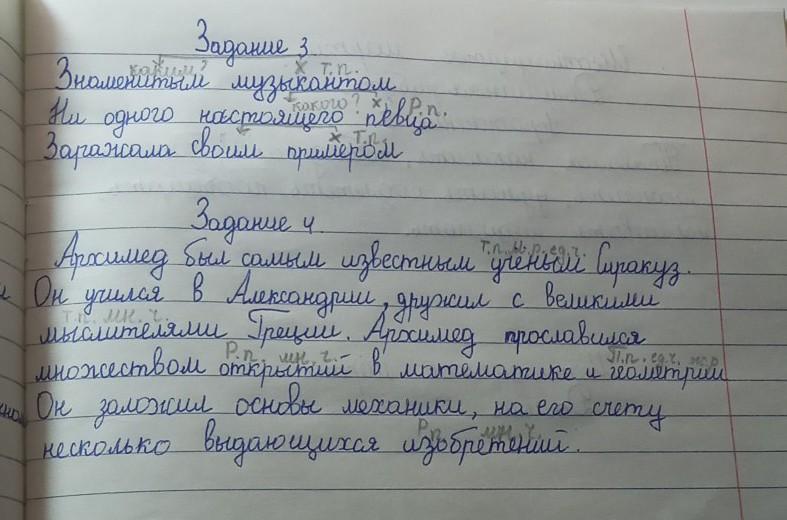 Задание 3
каким? х т.п.
Знаменитым музыкантом
какого? х Р.п.
Ни одного настоящего певца
х т.п.
Заражала своим примером
Задание 4
т.п. м.р. ед.ч.
Архимед был самым известным ученым Сиракуз.
Он учился в Александрии, дружил с великими
т.п. мн. ч.
мыслителями Греции. Архимед прославился
Р.п. мн. ч. П.п. ед.ч. ж.р
множеством открытий в математике и геометрии
Он заложил основы механики, на его счету
Р.п. мн. ч.
несколько выдающихся изобретений.